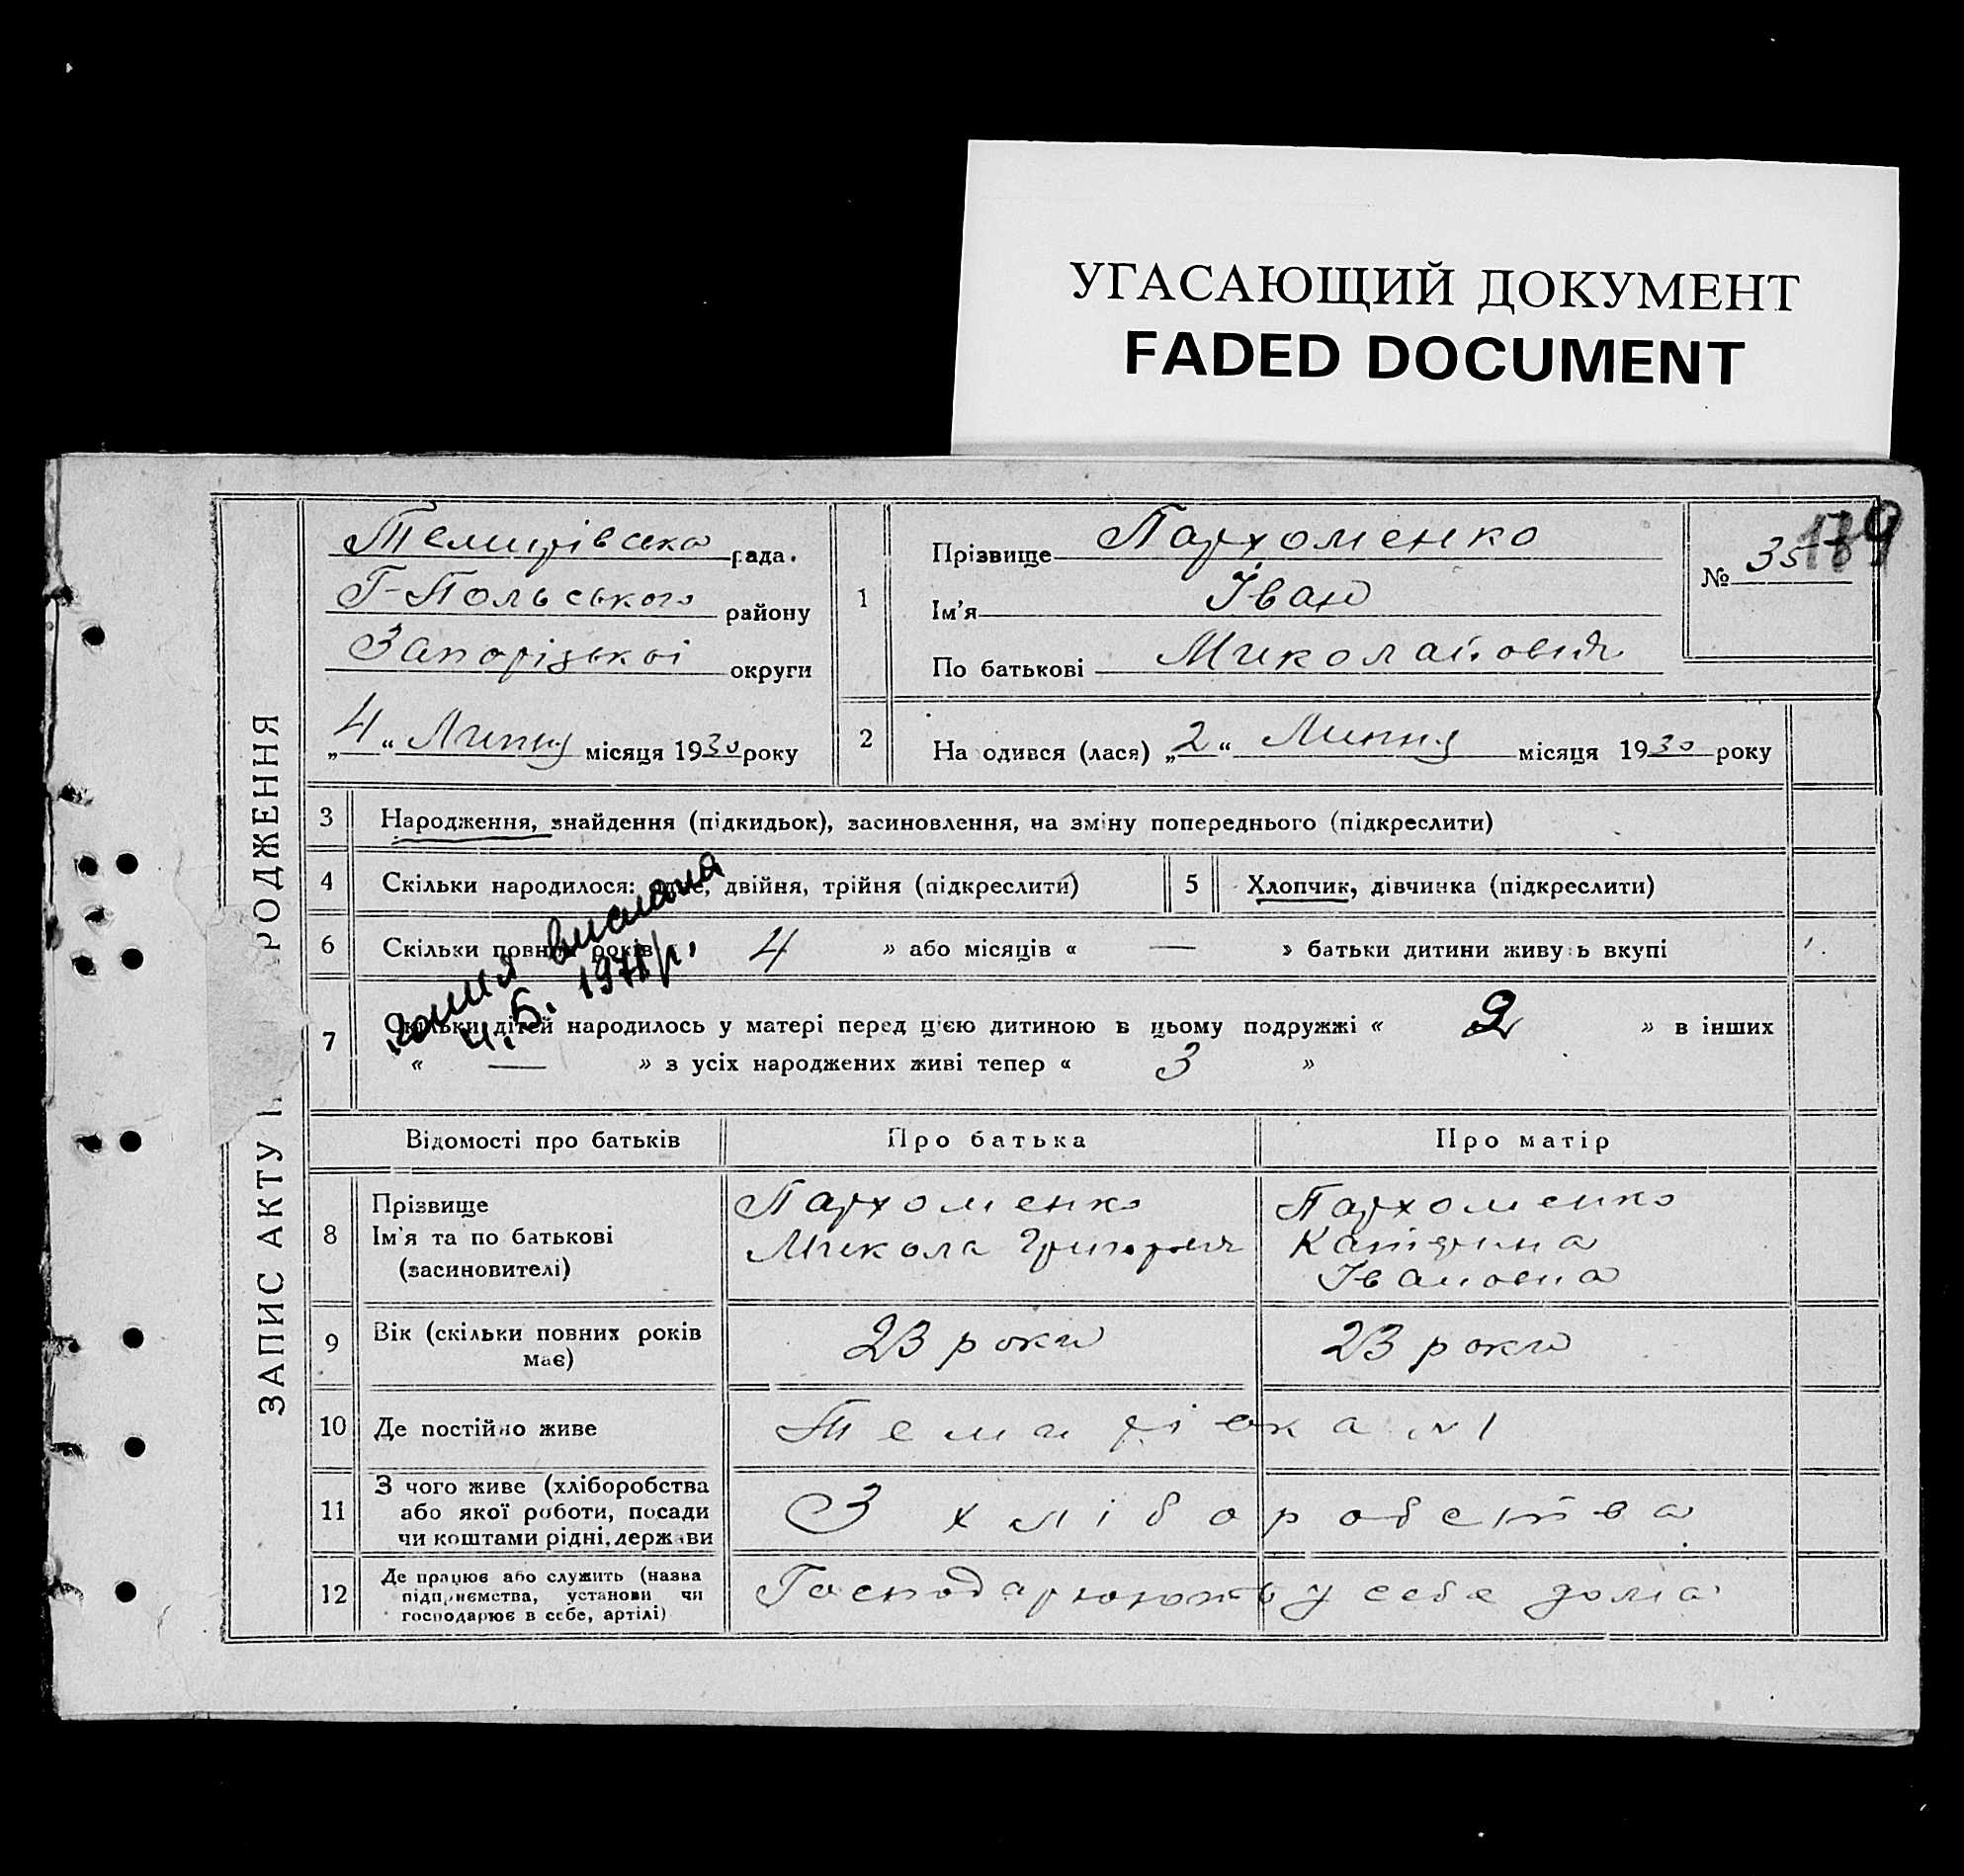 УГАСАЮЩИЙ ДОКУМЕНТ
FADED DOCUMENT
ЗАПИС АКТУ РОДЖЕННЯ
Темирівська рада.
Г-Польського району
Запорізької округи
„4“ Липня місяця 1930 року
1
Прізвище Пархоменко
Ім'я Іван
По батькові Миколайович
№ 35
189
2
На одився (лася) „2“ Липня місяця 1930 року
3 Народження, знайдення (підкидьок), засиновлення, на зміну попереднього (підкреслити)
4 Скільки народилося: двійня, трійня (підкреслити)
5 Хлопчик, дівчинка (підкреслити)
6 Скільки повних років 4 » або місяців « — » батьки дитини живуть вкупі
7 скільки дітей народилось у матері перед цією дитиною в цьому подружжі « 2 » в інших
« — » з усіх народжених живі тепер « 3 »
Відомості про батьків
Про батька
Про матір
8 Прізвище
Ім'я та по батькові
(засиновителі)
Пархоменко
Микола Григорович
Пархоменко
Катерина
Івановна
9 Вік (скільки повних років
має)
23 роки
23 роки
10 Де постійно живе
Темирівка №1
11 З чого живе (хліборобства
або якої роботи, посади
чи коштами рідні, держави
З хліборобства
12 Де працює або служить (назва
підприємства, установи чи
господарює в себе, артілі)
Господарюють у себе дома